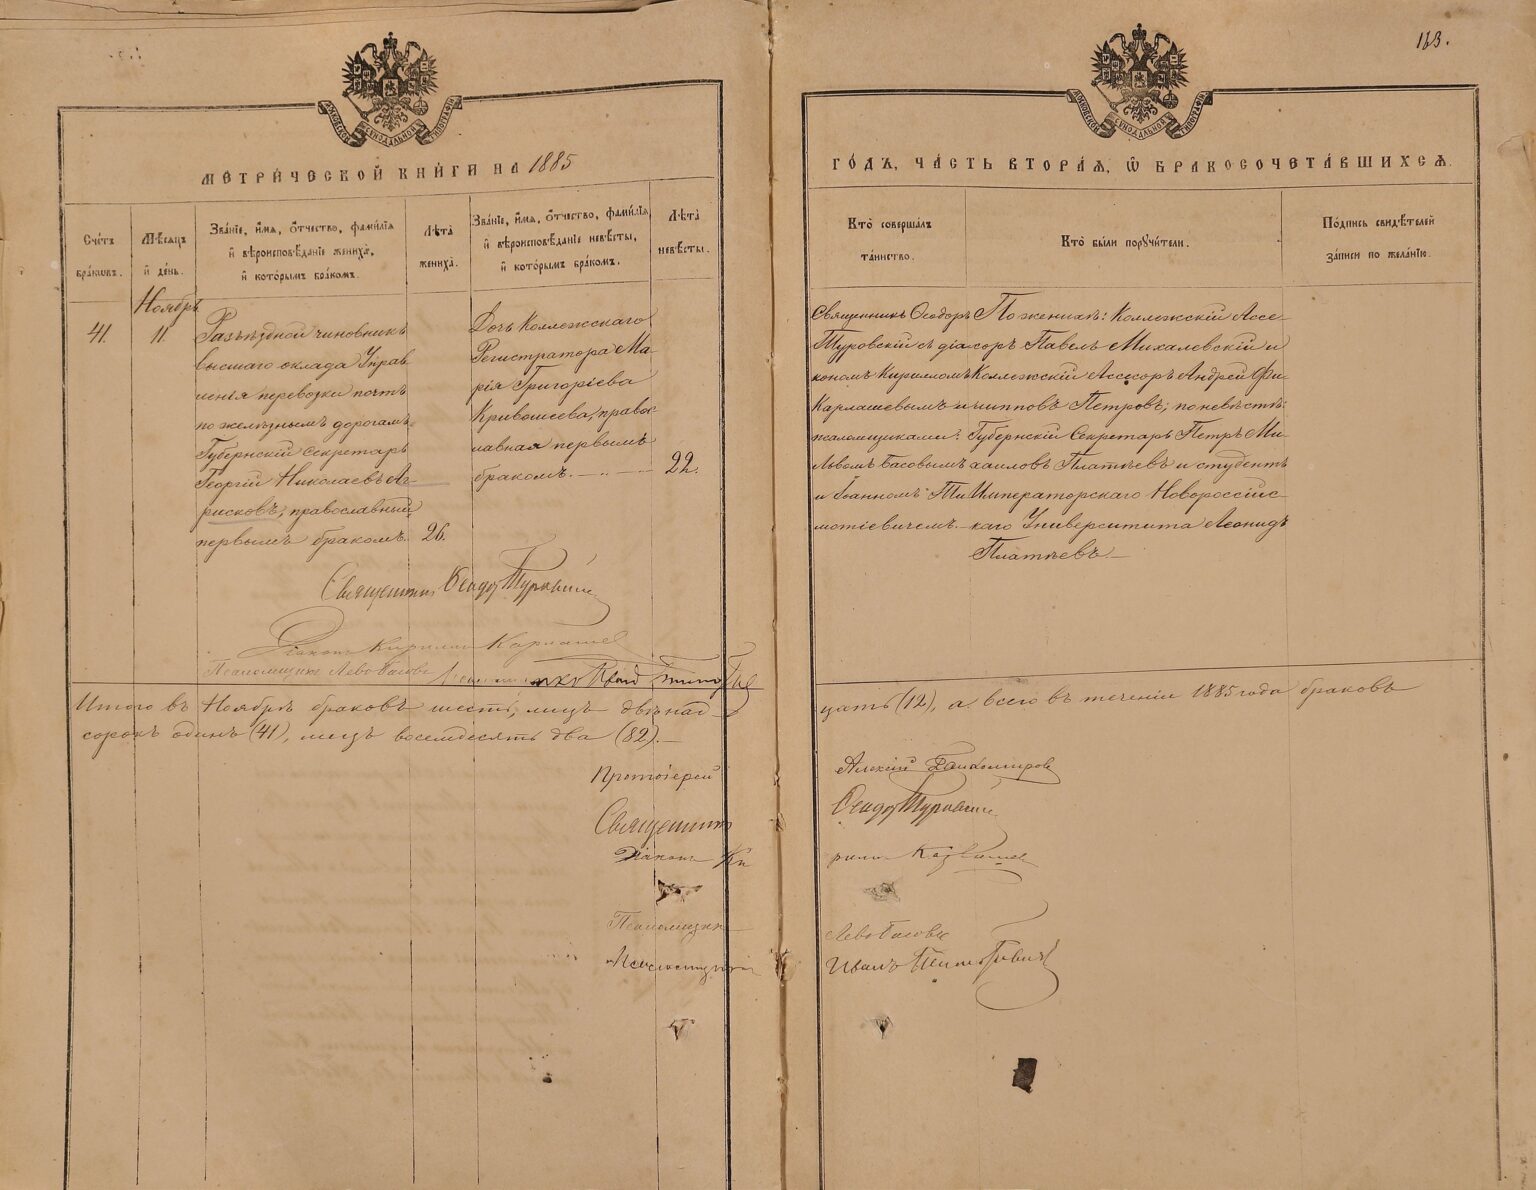 163.
МОСКОВСКОЙ СѴНОДАЛЬНОЙ ТИПОГРАФІИ
МОСКОВСКОЙ СѴНОДАЛЬНОЙ ТИПОГРАФІИ
МЕТРИ́ЧЕСКОЙ КНИ́ГИ НА 1885
ГО́ДЪ, ЧА́СТЬ ВТОРА́Я, Ѡ БРАКОСОЧЕТА́ВШИХСЯ.
Сче́тъ
бра́кѡвъ.
Мѣ́сяцъ
и҆ де́нь.
Зва́нїе, и҆́мя, ѻ҆́тчество, фами́лїя
и҆ вѣроисповѣ́данїе жениха̀,
и҆ кото́рымъ бра́комъ.
Лѣ́та
жениха̀.
Зва́нїе, и҆́мя, ѻ҆́тчество, фами́лїя
и҆ вѣроисповѣ́данїе невѣ́сты,
и҆ кото́рымъ бра́комъ.
Лѣ́та
невѣ́сты.
Кто̀ соверша́лъ
та́инство.
Кто̀ бы́ли порꙋчи́тели.
По́дпись свидѣ́телей
за́писи по жела́нїю.
41.
Ноябрь
11.
Разъѣздной чиновникъ
высшаго оклада Управ
ленія перевозки почтъ
по желѣзнымъ дорогамъ
Губернскій Секретарь
Георгій Николаевъ А
рисковъ, православный
первымъ бракомъ.
26.
Дочь Коллежскаго
Регистратора Ма-
рія Григоріева
Кривошеева, правос
лавная первымъ
бракомъ.
22.
Священникъ Ѳеодоръ
Туровскій съ діа
кономъ Кирилломъ
Карлашевымъ и
псаломщиками:
Львомъ Басовымъ
и Іоанномъ Ти
мотіевичемъ.
По женихѣ: Коллежскій Ассе-
соръ Павелъ Михалевскій и
Коллежскій Ассесоръ Андрей Фи-
липповъ Петровъ; по невѣстѣ:
Губернскій Секретарь Петръ Ми-
хаиловъ Платѣевъ и студентъ
Императорскаго Новороссійс-
каго Университета Леонидъ
Платѣевъ.
Священникъ Ѳеодоръ Туровскій
Діаконъ Кириллъ Карлашев
Псаломщикъ Левъ Басовъ
Итого въ Ноябрѣ браковъ шесть, лицъ двѣнад-
цать (12), а всего въ теченіи 1885 года браковъ
сорокъ одинъ (41), лицъ восемдесятъ два (82).
Протоіерей Алексій
Священникъ Ѳеодоръ Туровскій
Діаконъ Кириллъ Карлашев
Псаломщикъ Левъ Басовъ
Псаломщикъ Иванъ Тимотіевичъ